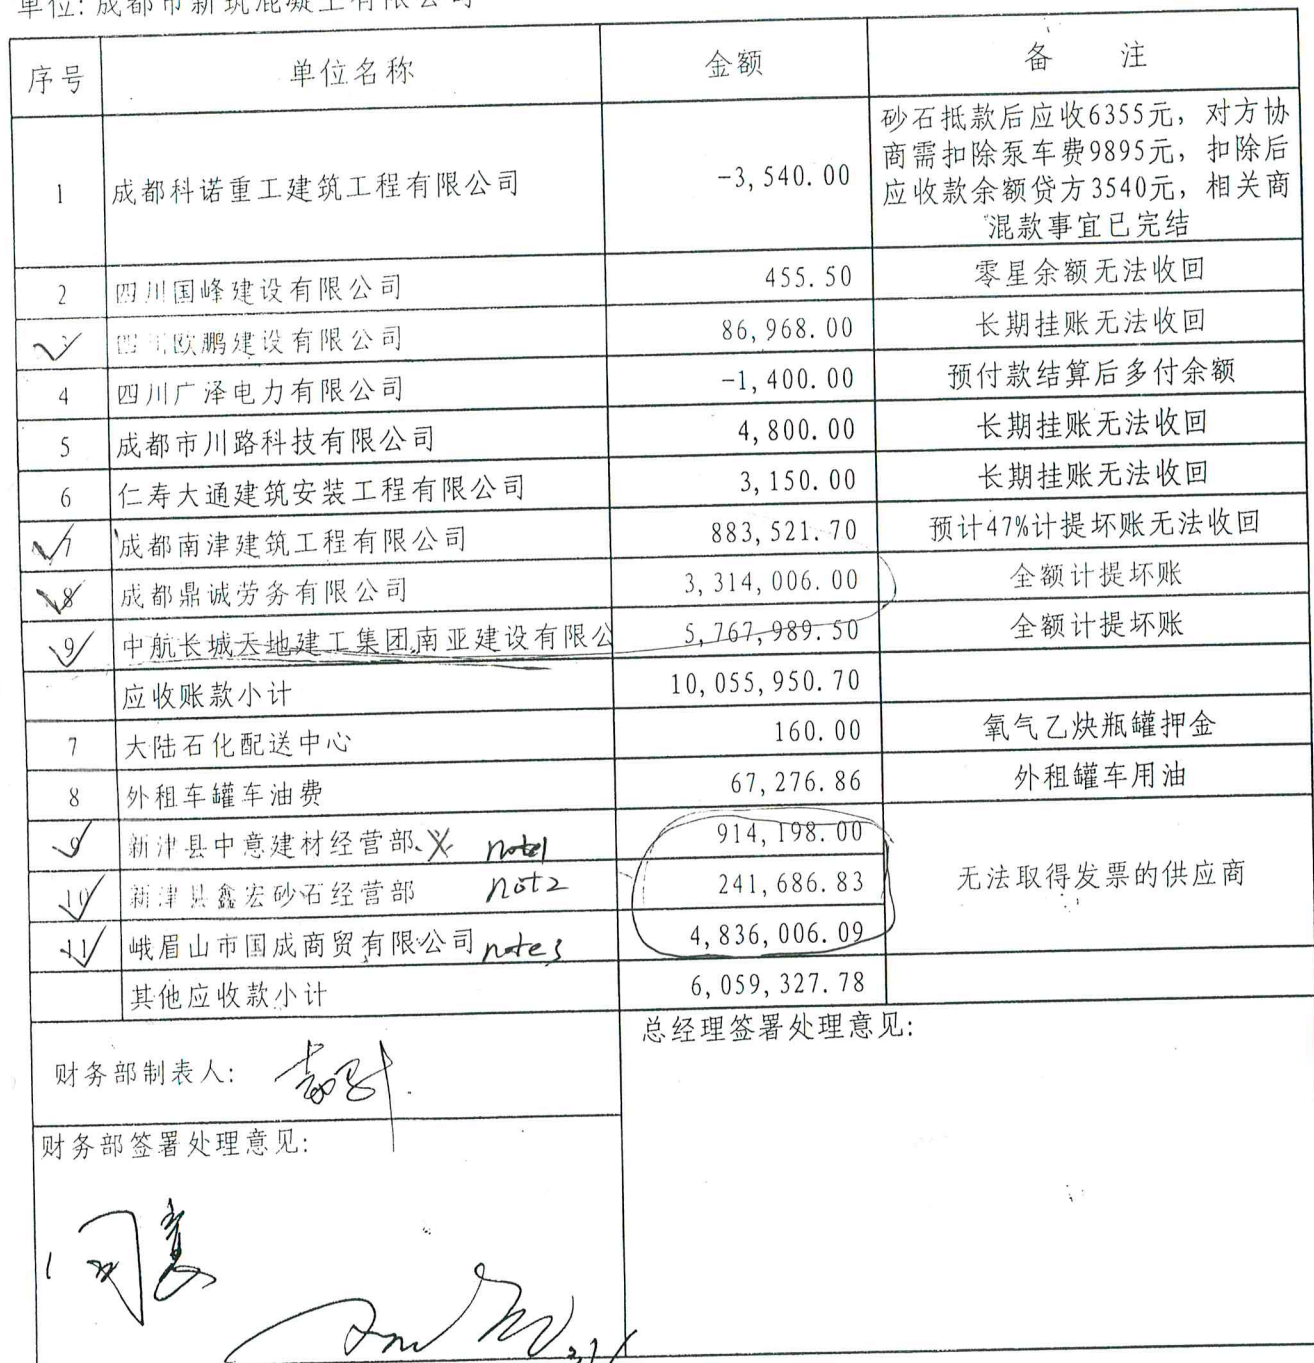 单位:成都市新筑混凝土有限公司
序号 单位名称 金额 备 注
1 成都科诺重工建筑工程有限公司 -3,540.00 砂石抵款后应收6355元，对方协
商需扣除泵车费9895元，扣除后
应收款余额贷方3540元，相关商
混款事宜已完结
2 四川国峰建设有限公司 455.50 零星余额无法收回
3 四川欧鹏建设有限公司 86,968.00 长期挂账无法收回
4 四川广泽电力有限公司 -1,400.00 预付款结算后多付余额
5 成都市川路科技有限公司 4,800.00 长期挂账无法收回
6 仁寿大通建筑安装工程有限公司 3,150.00 长期挂账无法收回
7 成都南津建筑工程有限公司 883,521.70 预计47%计提坏账无法收回
8 成都鼎诚劳务有限公司 3,314,006.00 全额计提坏账
9 中航长城天地建工集团南亚建设有限公 5,767,989.50 全额计提坏账
应收账款小计 10,055,950.70
7 大陆石化配送中心 160.00 氧气乙炔瓶罐押金
8 外租车罐车油费 67,276.86 外租罐车用油
9 新津县中意建材经营部 note1 914,198.00
10 新津县鑫宏砂石经营部 not2 241,686.83 无法取得发票的供应商
11 峨眉山市国成商贸有限公司 note3 4,836,006.09
其他应收款小计 6,059,327.78
总经理签署处理意见:
财务部制表人:
财务部签署处理意见:
同意